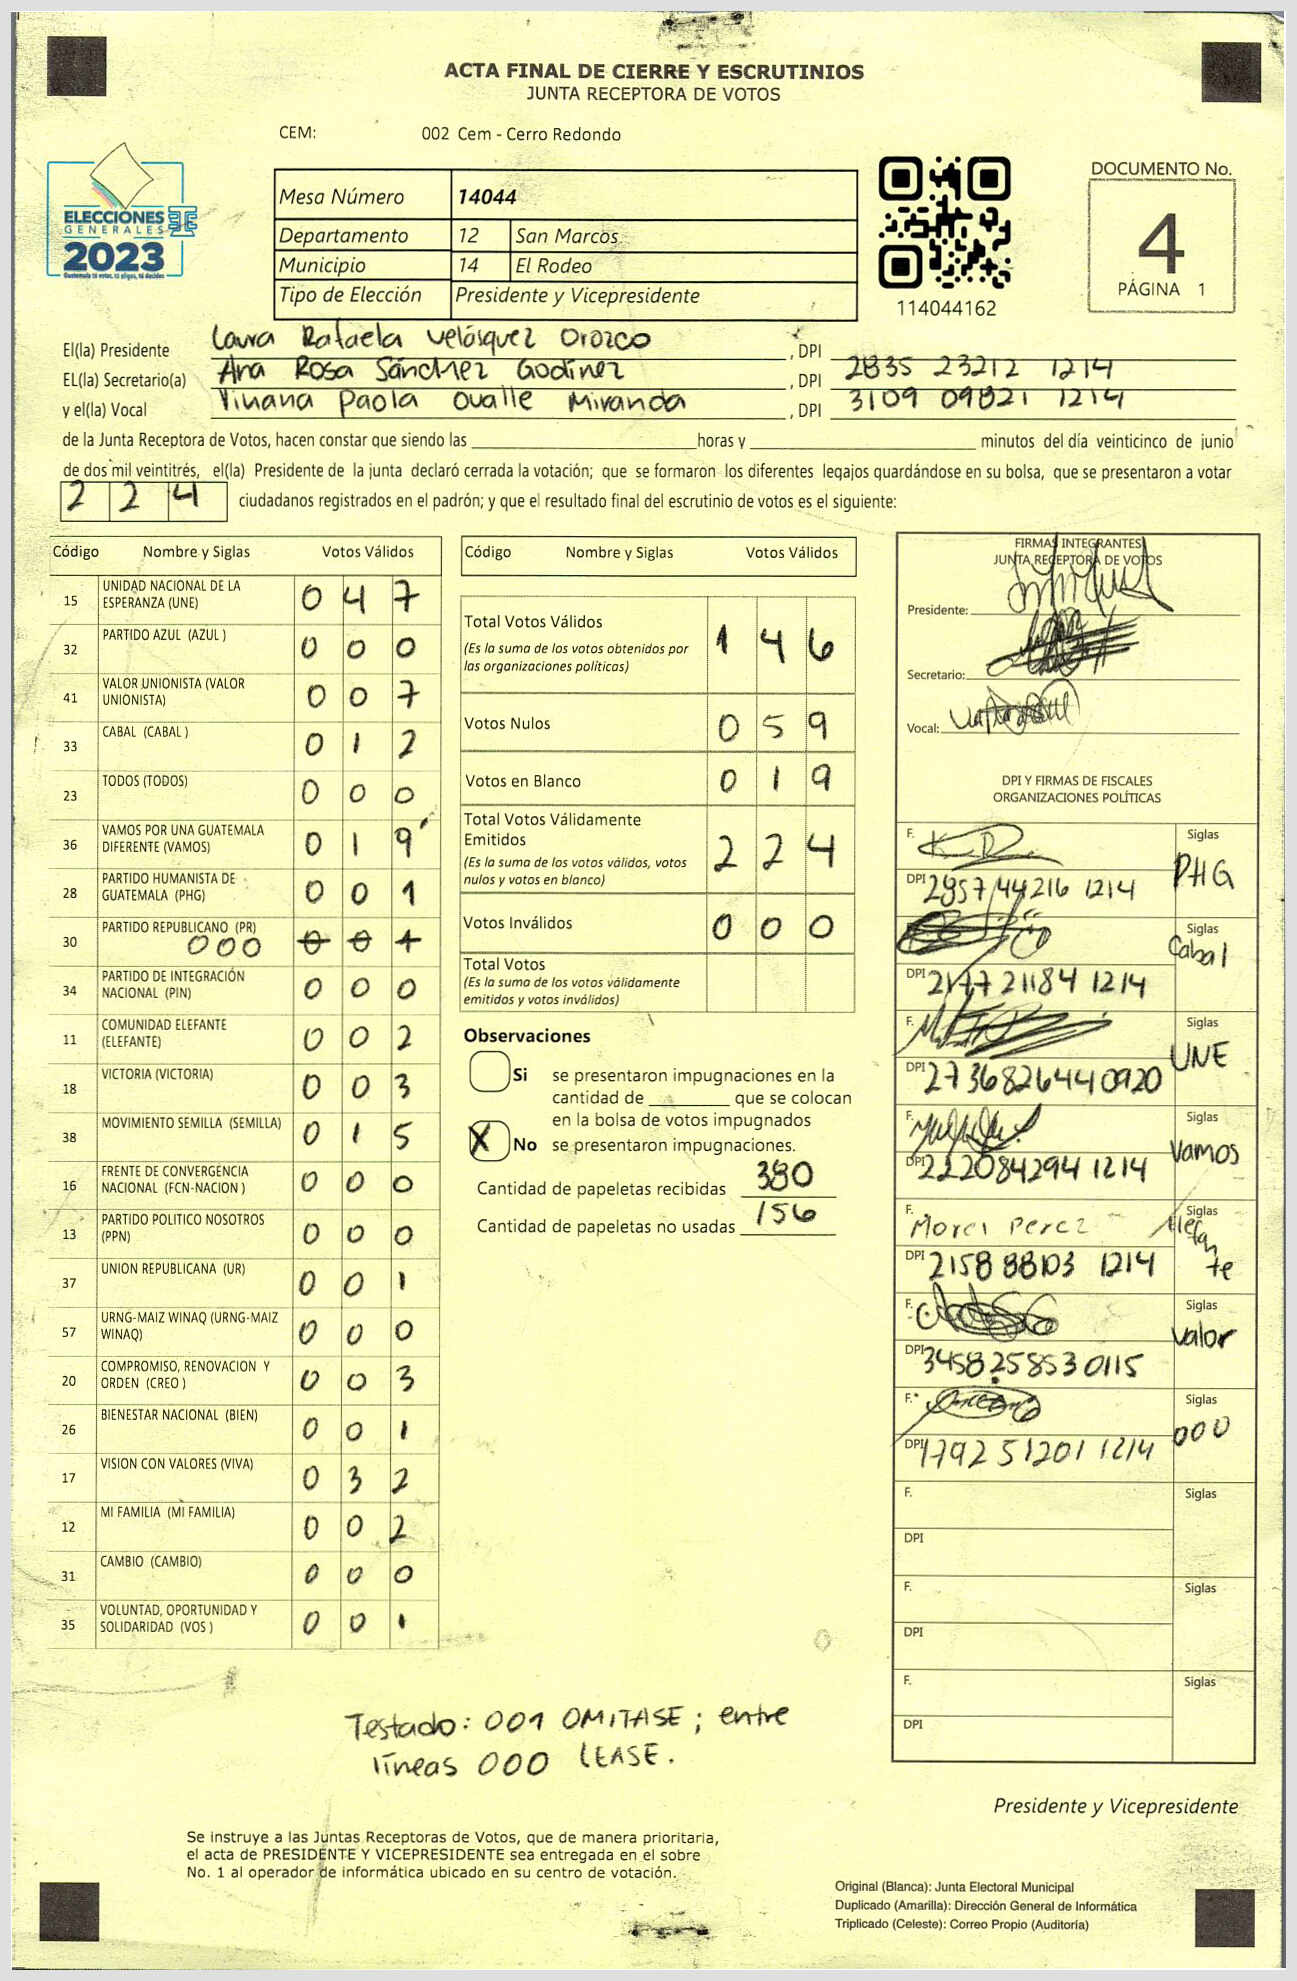 ACTA FINAL DE CIERRE Y ESCRUTINIOS
JUNTA RECEPTORA DE VOTOS
CEM: 002 Cem - Cerro Redondo
ELECCIONES
GENERALES
2023
Mesa Número 14044
Departamento 12 San Marcos
Municipio 14 El Rodeo
Tipo de Elección Presidente y Vicepresidente
114044162
DOCUMENTO No.
4
PÁGINA 1
El(la) Presidente Laura Rafaela Velásquez Orozco , DPI
EL(la) Secretario(a) Ana Rosa Sánchez Godínez , DPI 2835 23212 1214
y el(la) Vocal Viviana Paola Ovalle Miranda , DPI 3109 09821 1214
de la Junta Receptora de Votos, hacen constar que siendo las horas y minutos del día veinticinco de junio
de dos mil veintitrés, el(la) Presidente de la junta declaró cerrada la votación; que se formaron los diferentes legajos guardándose en su bolsa, que se presentaron a votar
224 ciudadanos registrados en el padrón; y que el resultado final del escrutinio de votos es el siguiente:
Código Nombre y Siglas Votos Válidos
15 UNIDAD NACIONAL DE LA ESPERANZA (UNE) 0 4 7
32 PARTIDO AZUL (AZUL ) 0 0 0
41 VALOR UNIONISTA (VALOR UNIONISTA) 0 0 7
33 CABAL (CABAL ) 0 1 2
23 TODOS (TODOS) 0 0 0
36 VAMOS POR UNA GUATEMALA DIFERENTE (VAMOS) 0 1 9
28 PARTIDO HUMANISTA DE GUATEMALA (PHG) 0 0 1
30 PARTIDO REPUBLICANO (PR) 000 0 0 1
34 PARTIDO DE INTEGRACIÓN NACIONAL (PIN) 0 0 0
11 COMUNIDAD ELEFANTE (ELEFANTE) 0 0 2
18 VICTORIA (VICTORIA) 0 0 3
38 MOVIMIENTO SEMILLA (SEMILLA) 0 1 5
16 FRENTE DE CONVERGENCIA NACIONAL (FCN-NACION ) 0 0 0
13 PARTIDO POLITICO NOSOTROS (PPN) 0 0 0
37 UNION REPUBLICANA (UR) 0 0 1
57 URNG-MAIZ WINAQ (URNG-MAIZ WINAQ) 0 0 0
20 COMPROMISO, RENOVACION Y ORDEN (CREO ) 0 0 3
26 BIENESTAR NACIONAL (BIEN) 0 0 1
17 VISION CON VALORES (VIVA) 0 3 2
12 MI FAMILIA (MI FAMILIA) 0 0 2
31 CAMBIO (CAMBIO) 0 0 0
35 VOLUNTAD, OPORTUNIDAD Y SOLIDARIDAD (VOS ) 0 0 1
Código Nombre y Siglas Votos Válidos
Total Votos Válidos 1 4 6
(Es la suma de los votos obtenidos por
las organizaciones políticas)
Votos Nulos 0 5 9
Votos en Blanco 0 1 9
Total Votos Válidamente
Emitidos 2 2 4
(Es la suma de los votos válidos, votos
nulos y votos en blanco)
Votos Inválidos 0 0 0
Total Votos
(Es la suma de los votos válidamente
emitidos y votos inválidos)
Observaciones
Si se presentaron impugnaciones en la
cantidad de que se colocan
en la bolsa de votos impugnados
X No se presentaron impugnaciones.
Cantidad de papeletas recibidas 380
Cantidad de papeletas no usadas 156
FIRMAS INTEGRANTES
JUNTA RECEPTORA DE VOTOS
Presidente:
Secretario:
Vocal:
DPI Y FIRMAS DE FISCALES
ORGANIZACIONES POLÍTICAS
F. Siglas PHG
DPI 2957 44216 1214
F. Siglas Cabal
DPI 2177 21184 1214
F. Siglas UNE
DPI 2736826440920
F. Siglas Vamos
DPI 2220842941214
F. Perez Siglas Elefante
DPI 2158 88103 1214
F. Siglas valor
DPI 3458258530115
F. Siglas 000
DPI 1792 51201 1214
F. Siglas
DPI
F. Siglas
DPI
F. Siglas
DPI
Testado: 001 OMITASE; entre
líneas 000 LEASE.
Presidente y Vicepresidente
Se instruye a las Juntas Receptoras de Votos, que de manera prioritaria,
el acta de PRESIDENTE Y VICEPRESIDENTE sea entregada en el sobre
No. 1 al operador de informática ubicado en su centro de votación.
Original (Blanca): Junta Electoral Municipal
Duplicado (Amarilla): Dirección General de Informática
Triplicado (Celeste): Correo Propio (Auditoría)